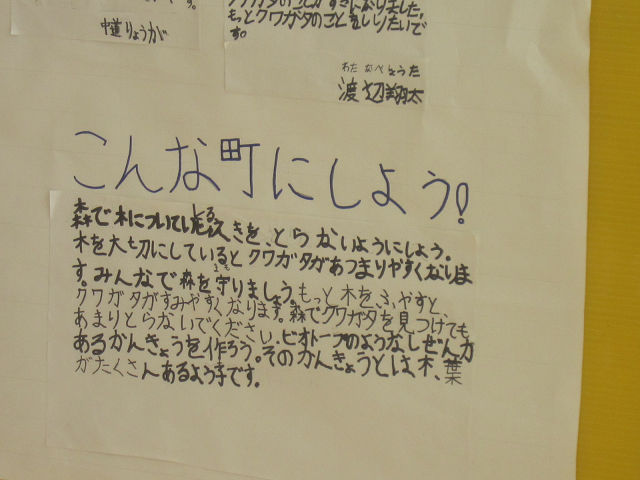 す。
中蓮りょうが
クワガタのことがすきになりました。
もっとクワガタのことをしりたいで
す。
わた なべ しょうた
渡辺翔太
こんな町にしよう!
森で木についているえきを、とらないようにしよう。
木を大切にしているとクワガタがあつまりやすくなりま
す。みんなで森を守りましょう。もっと木をふやすと、
クワガタがすみやすくなります。森でクワガタを見つけても
あまりとらないでください。ビオトープのようなしぜんが
あるかんきょうを作ろう。そのかんきょうとは、木、葉
がたくさんあるようすです。